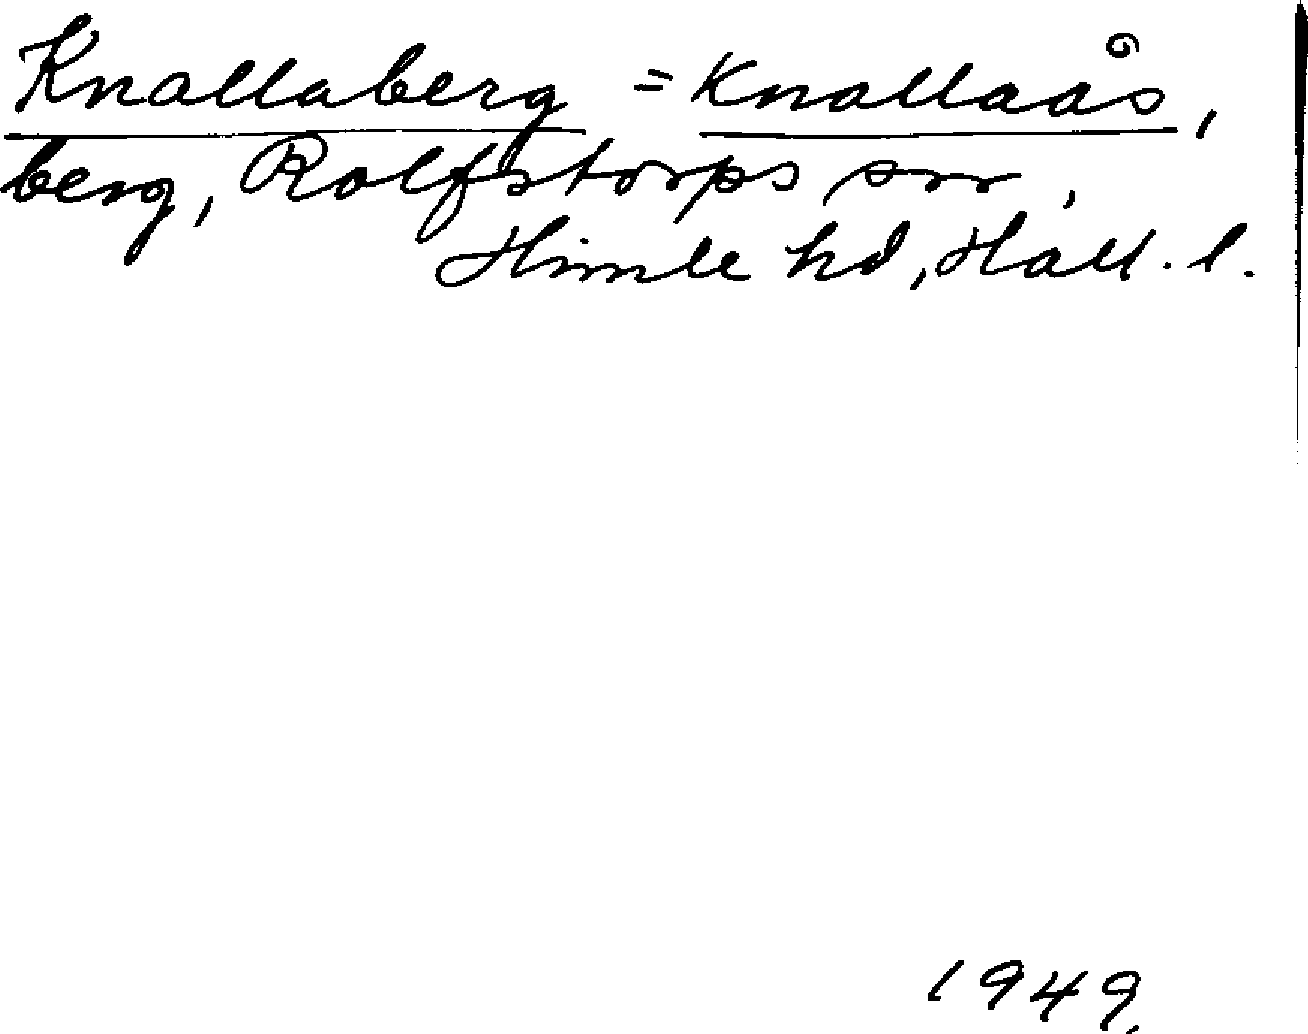 Knallaberg = Knallaås,
berg, Rolfstorps sn,
Himle hd, Hall. l.
1949.